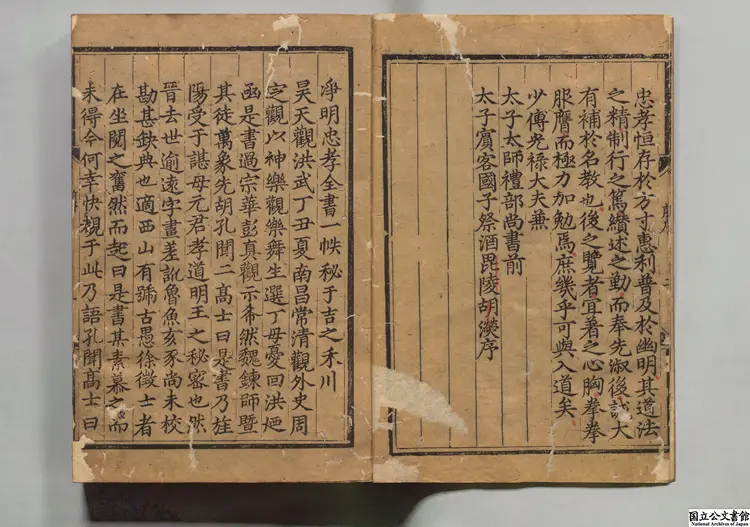 忠孝恒存於方寸惠利普及於幽明其道法
之精制行之篤纘述之勤而奉先淑後誠大
有補於名教也後之覽者宜著之心胸拳拳
服膺而極力加勉焉庶幾乎可與入道矣
少傅光祿大夫兼
太子太師禮部尚書前
太子賓客國子祭酒毘陵胡濙序
淨明忠孝全書一帙秘于吉之禾川
昊天觀洪武丁丑夏南昌常清觀外史周
定觀以神樂觀樂舞生選丁母憂回洪
函是書過宗華彭真觀示斋然魏鍊師暨
其徒萬象先胡孔聞二高士曰是書乃旌
陽受于諶母元君孝道明王之秘密也然
晉去世逾遠字畫差訛魯魚亥豕尚未校
勘甚缺典也適西山有號古愚徐徵士者
在坐閱之奮然而起曰是書某素慕之而
未得今何幸快覩于此乃語孔聞高士曰
国立公文書館
National Archives of Japan